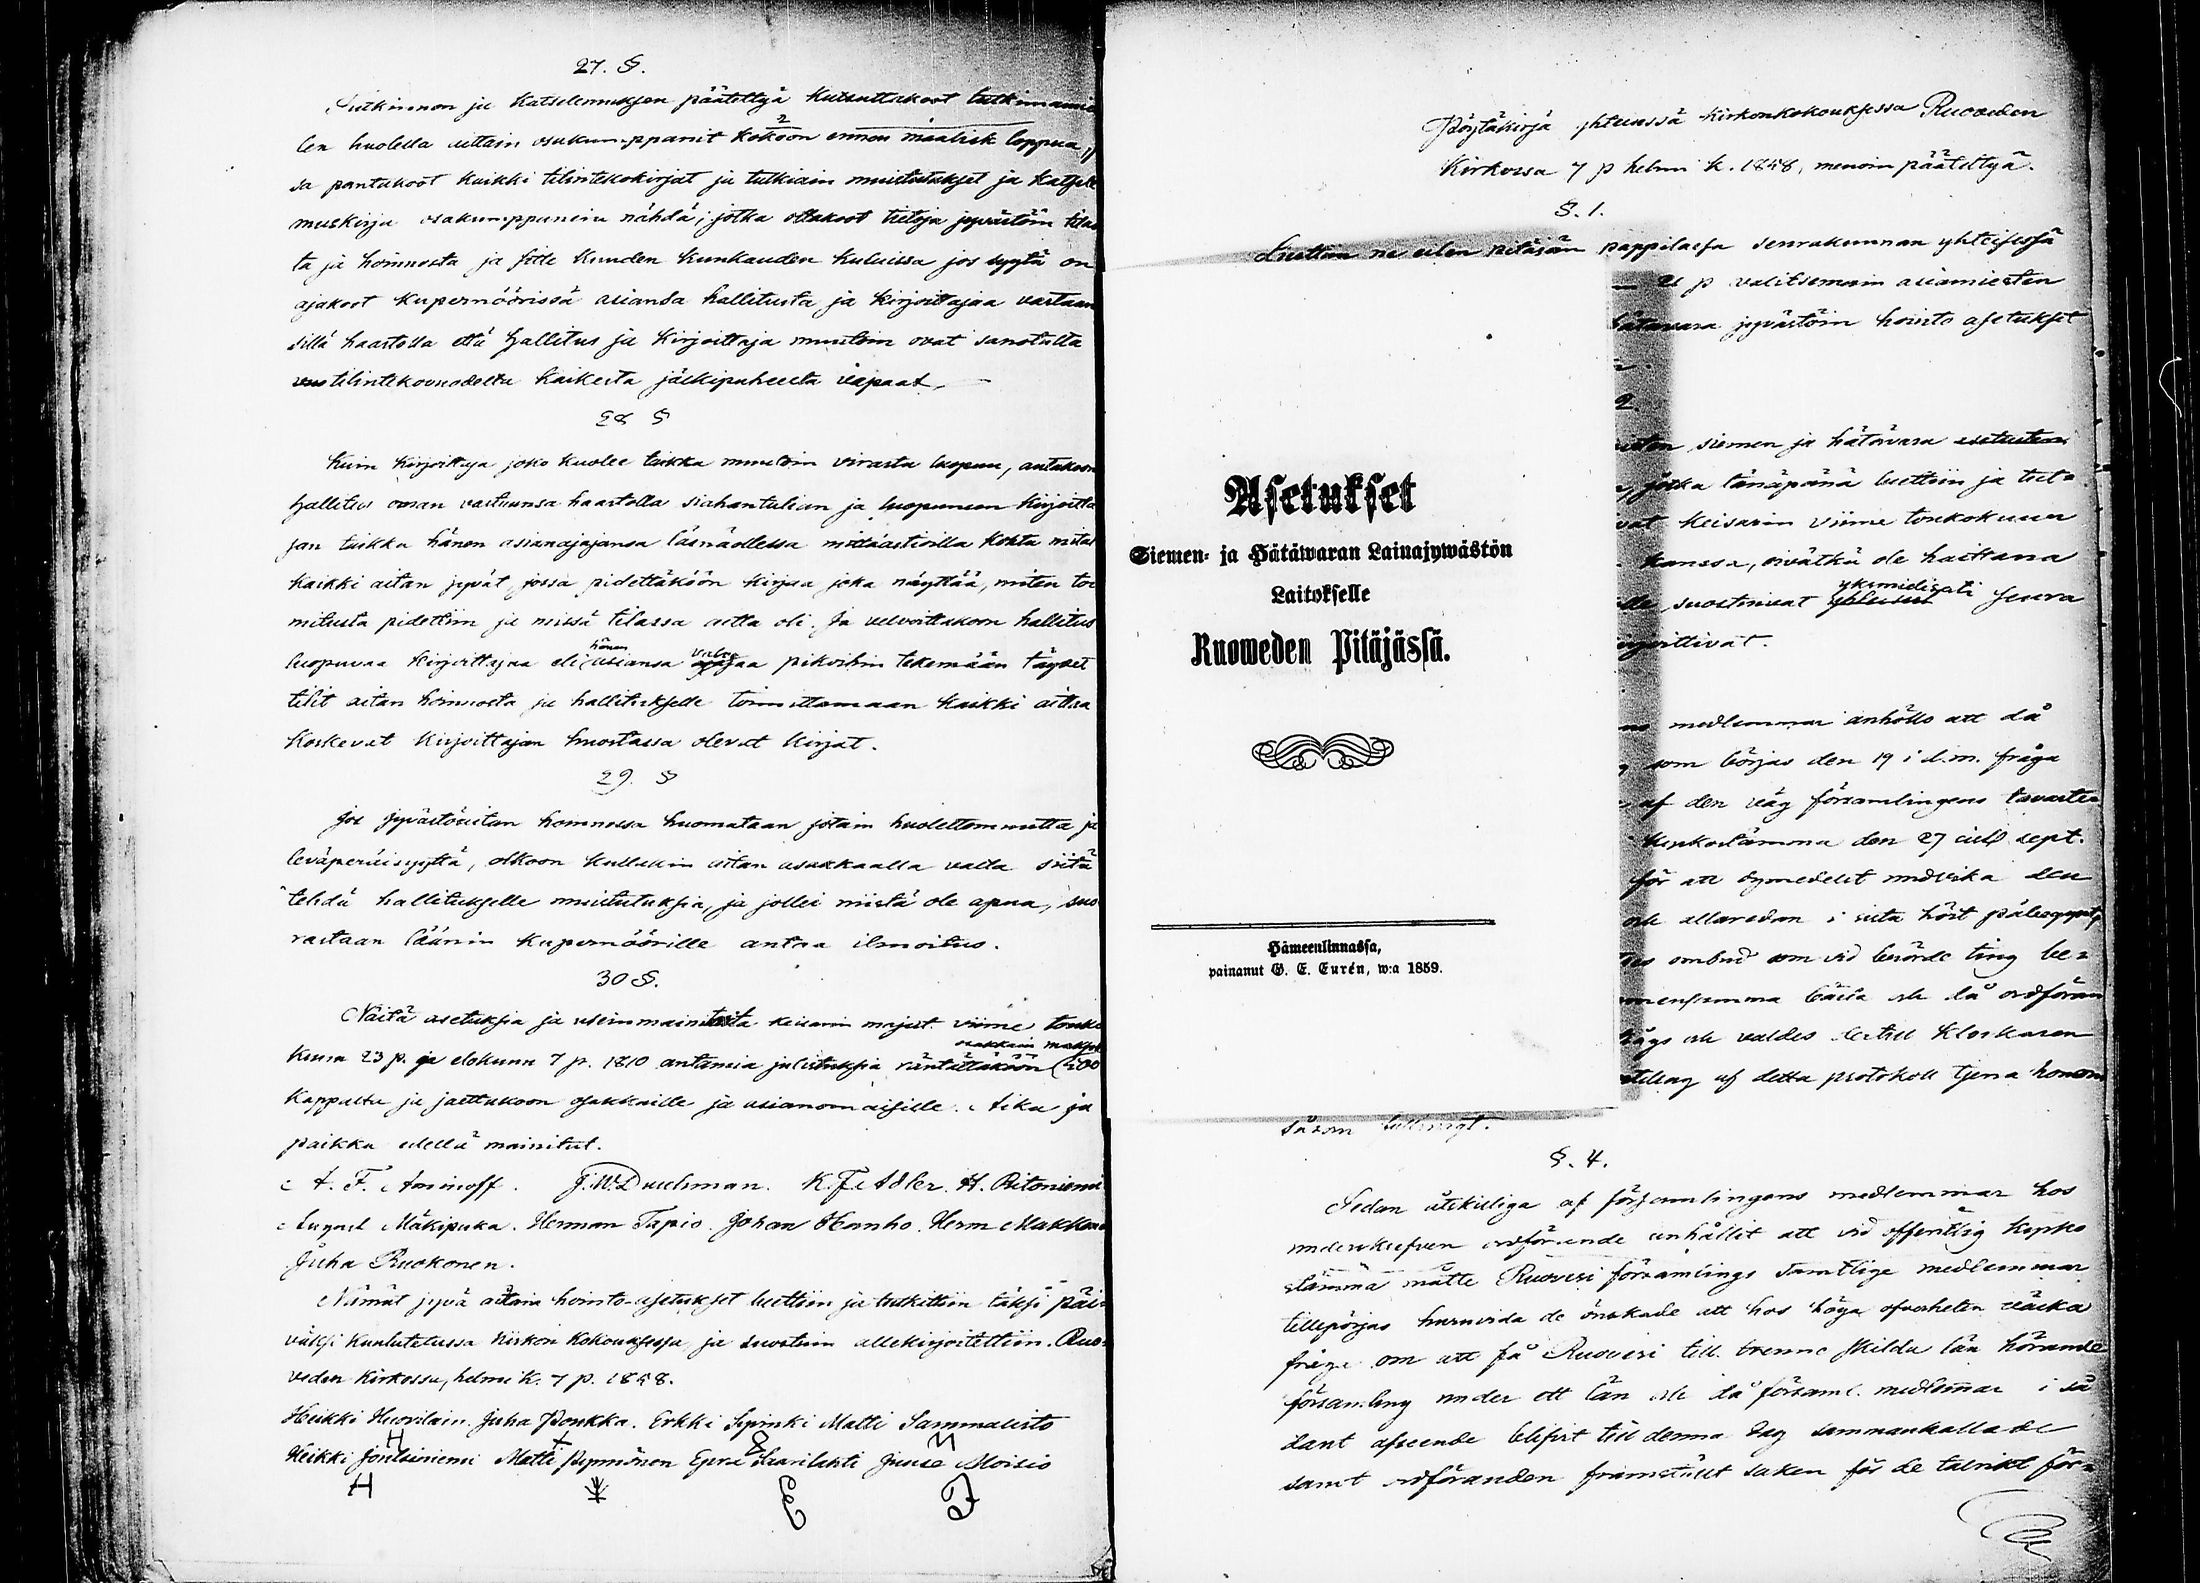 27. §.
Tutkinnon ja Katselemuksen päätettyä Kutsuttakoot tutkinnamie
len huolella aittain osakumppanit Kokoon ennen maalisk loppua,
sa pantakoot kaikki tilintekokirjat ja tutkiain muistutukset ja Katsele
muskirja osakumppanein nähdä; jotka ottakoot tietoja jyvästöin tilas
ta ja hoinnosta ja sitte kuuden kunkauden kuluissa jos syytä on
ajakoot kupernöörissä asiansa hallitusta ja kirjoittajaa vastaan
sillä haastolla että hallitus ja Kirjoittaja muutoin ovat sanotulta
tilintekovuodelta kaikesta jälkipuheesta vapaat.
28 §
Kuin Kirjoittaja joko kuolee taikka muutoin virasta luopuu, antakoon
hallitus oman vastuunsa haastolla siahantulian ja luopuneen Kirjoitta
jan taikka hänen asianajajansa läsnäollessa mittaastioilla kohta mitat
kaikki aitan jyvät, jossa pidettäköön kirjaa joka näyttää, miten toi
mitusta pidettiin ja missä tilassa aitta oli. Ja velvoittakoon hallitus
hänen valvo
luopuvaa Kirjoittajaa eli asiansa ajajaa pikoihin tekemään täydet
tilit aitan hoinnosta ja hallitukselle toimittamaan kaikki aittaa
koskevat Kirjoittajan huostassa olevat kirjat.
29. §
Jos jyvästöaitan hoinnossa huomataan jotain huolettomuutta ja
leväperäisyyttä, olkoon kullakin aitan asukkaalla valta siitä
tehdä hallitukselle muistutuksia, ja jollei niistä ole apua, suo
rastaan läänin Kupernöörille antaa ilmoitus.
30 §.
Näitä asetuksia ja useinmainituita keisarin majest. viime touko
osakkain maksol
kuun 23 p. ja elokuun 7 p. 1810 antamia julistuksia räntättäköön 500
Kappaltta ja jaettakoon osakkaille ja asianomaisille. Aika ja
paikka edellä mainitut.
A. F. Aminoff. J. W. Duchman. K. F. Adler. H. Ritoniemi
August Mäkipuka. Herman Tapio. Johan Hanho. Herm Makkon
Juha Ruokonen.
Nämät jyvä aitain hointo-asetukset luettiin ja tutkittiin täksi päi-
väksi kuulutetussa kirkon kokouksessa ja suostuin allekirjoitettiin. Ruo-
veden kirkossa, helmi k. 7 p. 1858.
Heikki Huovilain. Juha Ponkka. Erkki Sipinki Matti Sammalisto
Heikki Jöntsiniemi Matti Pynnönen Eera Saarilahti Juuse Moisio
H E
Pöytäkirja yhteisessä kirkonkokouksessa Ruoveden
Kirkossa 7 p helmi k. 1858, menoin päätettyä.
§. 1.
Luettiin ne eilen pitäjän pappilassa seurakunnan yhteisessä
21 p valitsemain asiamiesten
hätävara jyvästöin hointo asetukset
2.
siemen ja hätävara asetusten
jotka tänäpänä luettiin ja tut-
Keisarin viime toukokuun
kanssa, eivätkä ole haittana
yksmielisesti
suostuivat yhteisest seura
Asetukset
Siemen- ja Hätäwaran Lainajywästön
Laitokselle
Ruoweden Pitäjässä.
Hämeenlinnassa,
painanut G. E. Eurén, w:a 1859.
medlemmar anhölls att då
som börjas den 19 i d.m. fråga
af den väg församlingens tavaste
kyrkostämma den 27 sistl. sept.
för att dymedelst undvika den
och allaredan i sista höst
ombud som vid berörde ting be-
då ordföran
valdes dertill Klockaren
af detta protokoll tjena honom
såsom fullmagt.
§. 4.
Sedan åtskilliga af församlingens medlemmar hos
undersk­refven ordförande anhållit att vid offentlig kyrko
stämma måtte Ruovesi församlings samtlige medlemmar
tillspörjas huruvida de önskade att hos höga öfverheten väcka
fråga om att få Ruovesi till trenne skilda län hörande
församling under ett län och då församl. medlemmar i så
dant afseende blifvit till denna dag sammankallade
samt ordföranden framstält saken för de talrikt för-